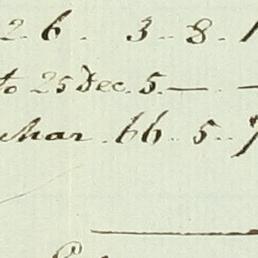 2. 6. 3. 8. 1
to 25 Dec. 5. — . —
Mar. 66. 5. 7